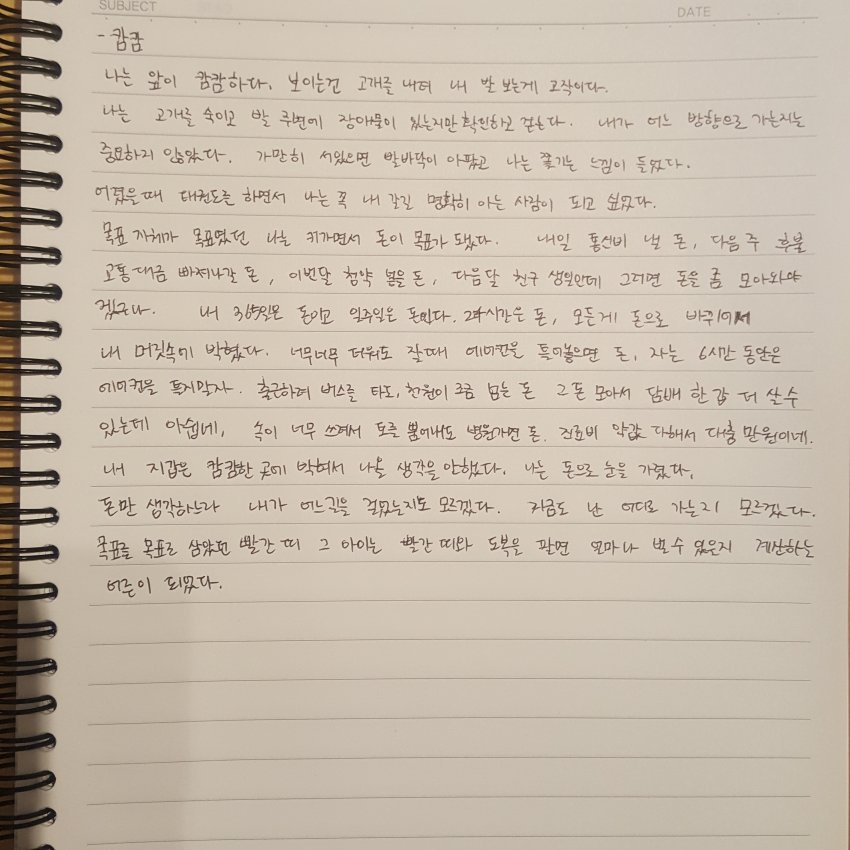 SUBJECT
DATE
- 캄캄
나는 앞이 캄캄하다. 보이는건 고개를 내려 내 발 보는게 고작이다.
나는 고개를 숙이고 발 주변에 장애물이 있는지만 확인하고 걷는다. 내가 어느 방향으로 가는지는
중요하지 않았다. 가만히 서있으면 발바닥이 아팠고 나는 쫓기는 느낌이 들었다.
어렸을때 태권도를 하면서 나는 꼭 내 갈길 명확히 아는 사람이 되고 싶었다.
목표 자체가 목표였던 나는 커가면서 돈이 목표가 됐었다. 내일 통신비 낼 돈, 다음 주 후불
교통대금 빠져나갈 돈, 이번달 청약 넣을 돈, 다음달 친구 생일인데 그러면 돈을 좀 모아놔야
겠구나. 내 365일은 돈이고 일주일은 돈이다. 24시간은 돈, 모든게 돈으로 바뀌어서
내 머릿속에 박혔다. 너무너무 더워도 잘때 에어컨을 틀어놓으면 돈, 자는 6시간 동안은
에어컨을 틀지말자. 출근하려 버스를 타도, 천원이 조금 넘는 돈 그 돈 모아서 담배 한 갑 더 살수
있는데 아쉽네, 속이 너무 쓰려서 토를 뿜어내도 병원가면 돈. 진료비 약값 다해서 대충 만원이네.
내 지갑은 캄캄한 곳에 박혀서 나올 생각을 안했다. 나는 돈으로 눈을 가렸다.
돈만 생각하느라 내가 어느길을 걸었는지도 모르겠다. 지금도 난 어디로 가는지 모르겠다.
목표를 목표로 삼았던 빨간 띠 그 아이는 빨간 띠와 도복을 팔면 얼마나 벌수 있을지 계산하는
어른이 되었다.